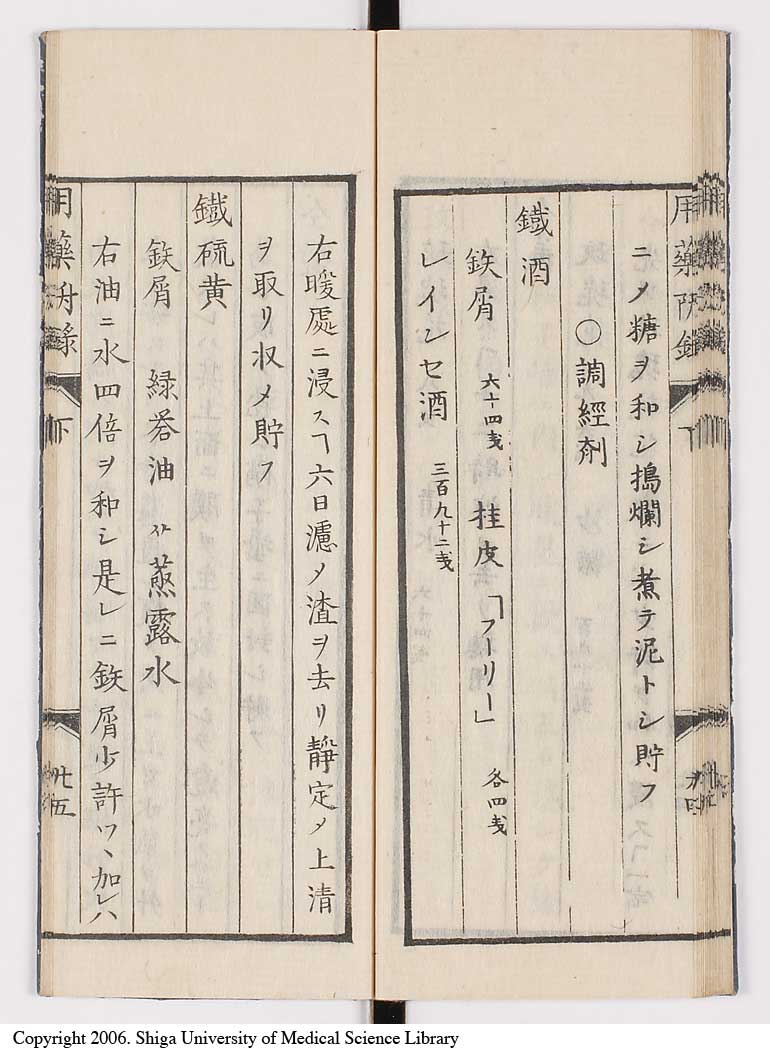 ニメ糖ヲ和シ搗爛シ煮テ泥トシ貯フ
○調經剤
鐵酒
鉄屑 六十四戔 桂皮 「フーリー」 各四戔
レインセ酒 三百九十二戔
右暖處ニ浸スヿ六日濾メ渣ヲ去リ靜定メ上清
ヲ取リ収メ貯フ
鐵硫黄
鉄屑 緑礬油 蒸露水
右油ニ水四倍ヲ和シ是レニ鉄屑少許ツヽ加レハ
用藥 録 下 廿五
Copyright 2006. Shiga University of Medical Science Library